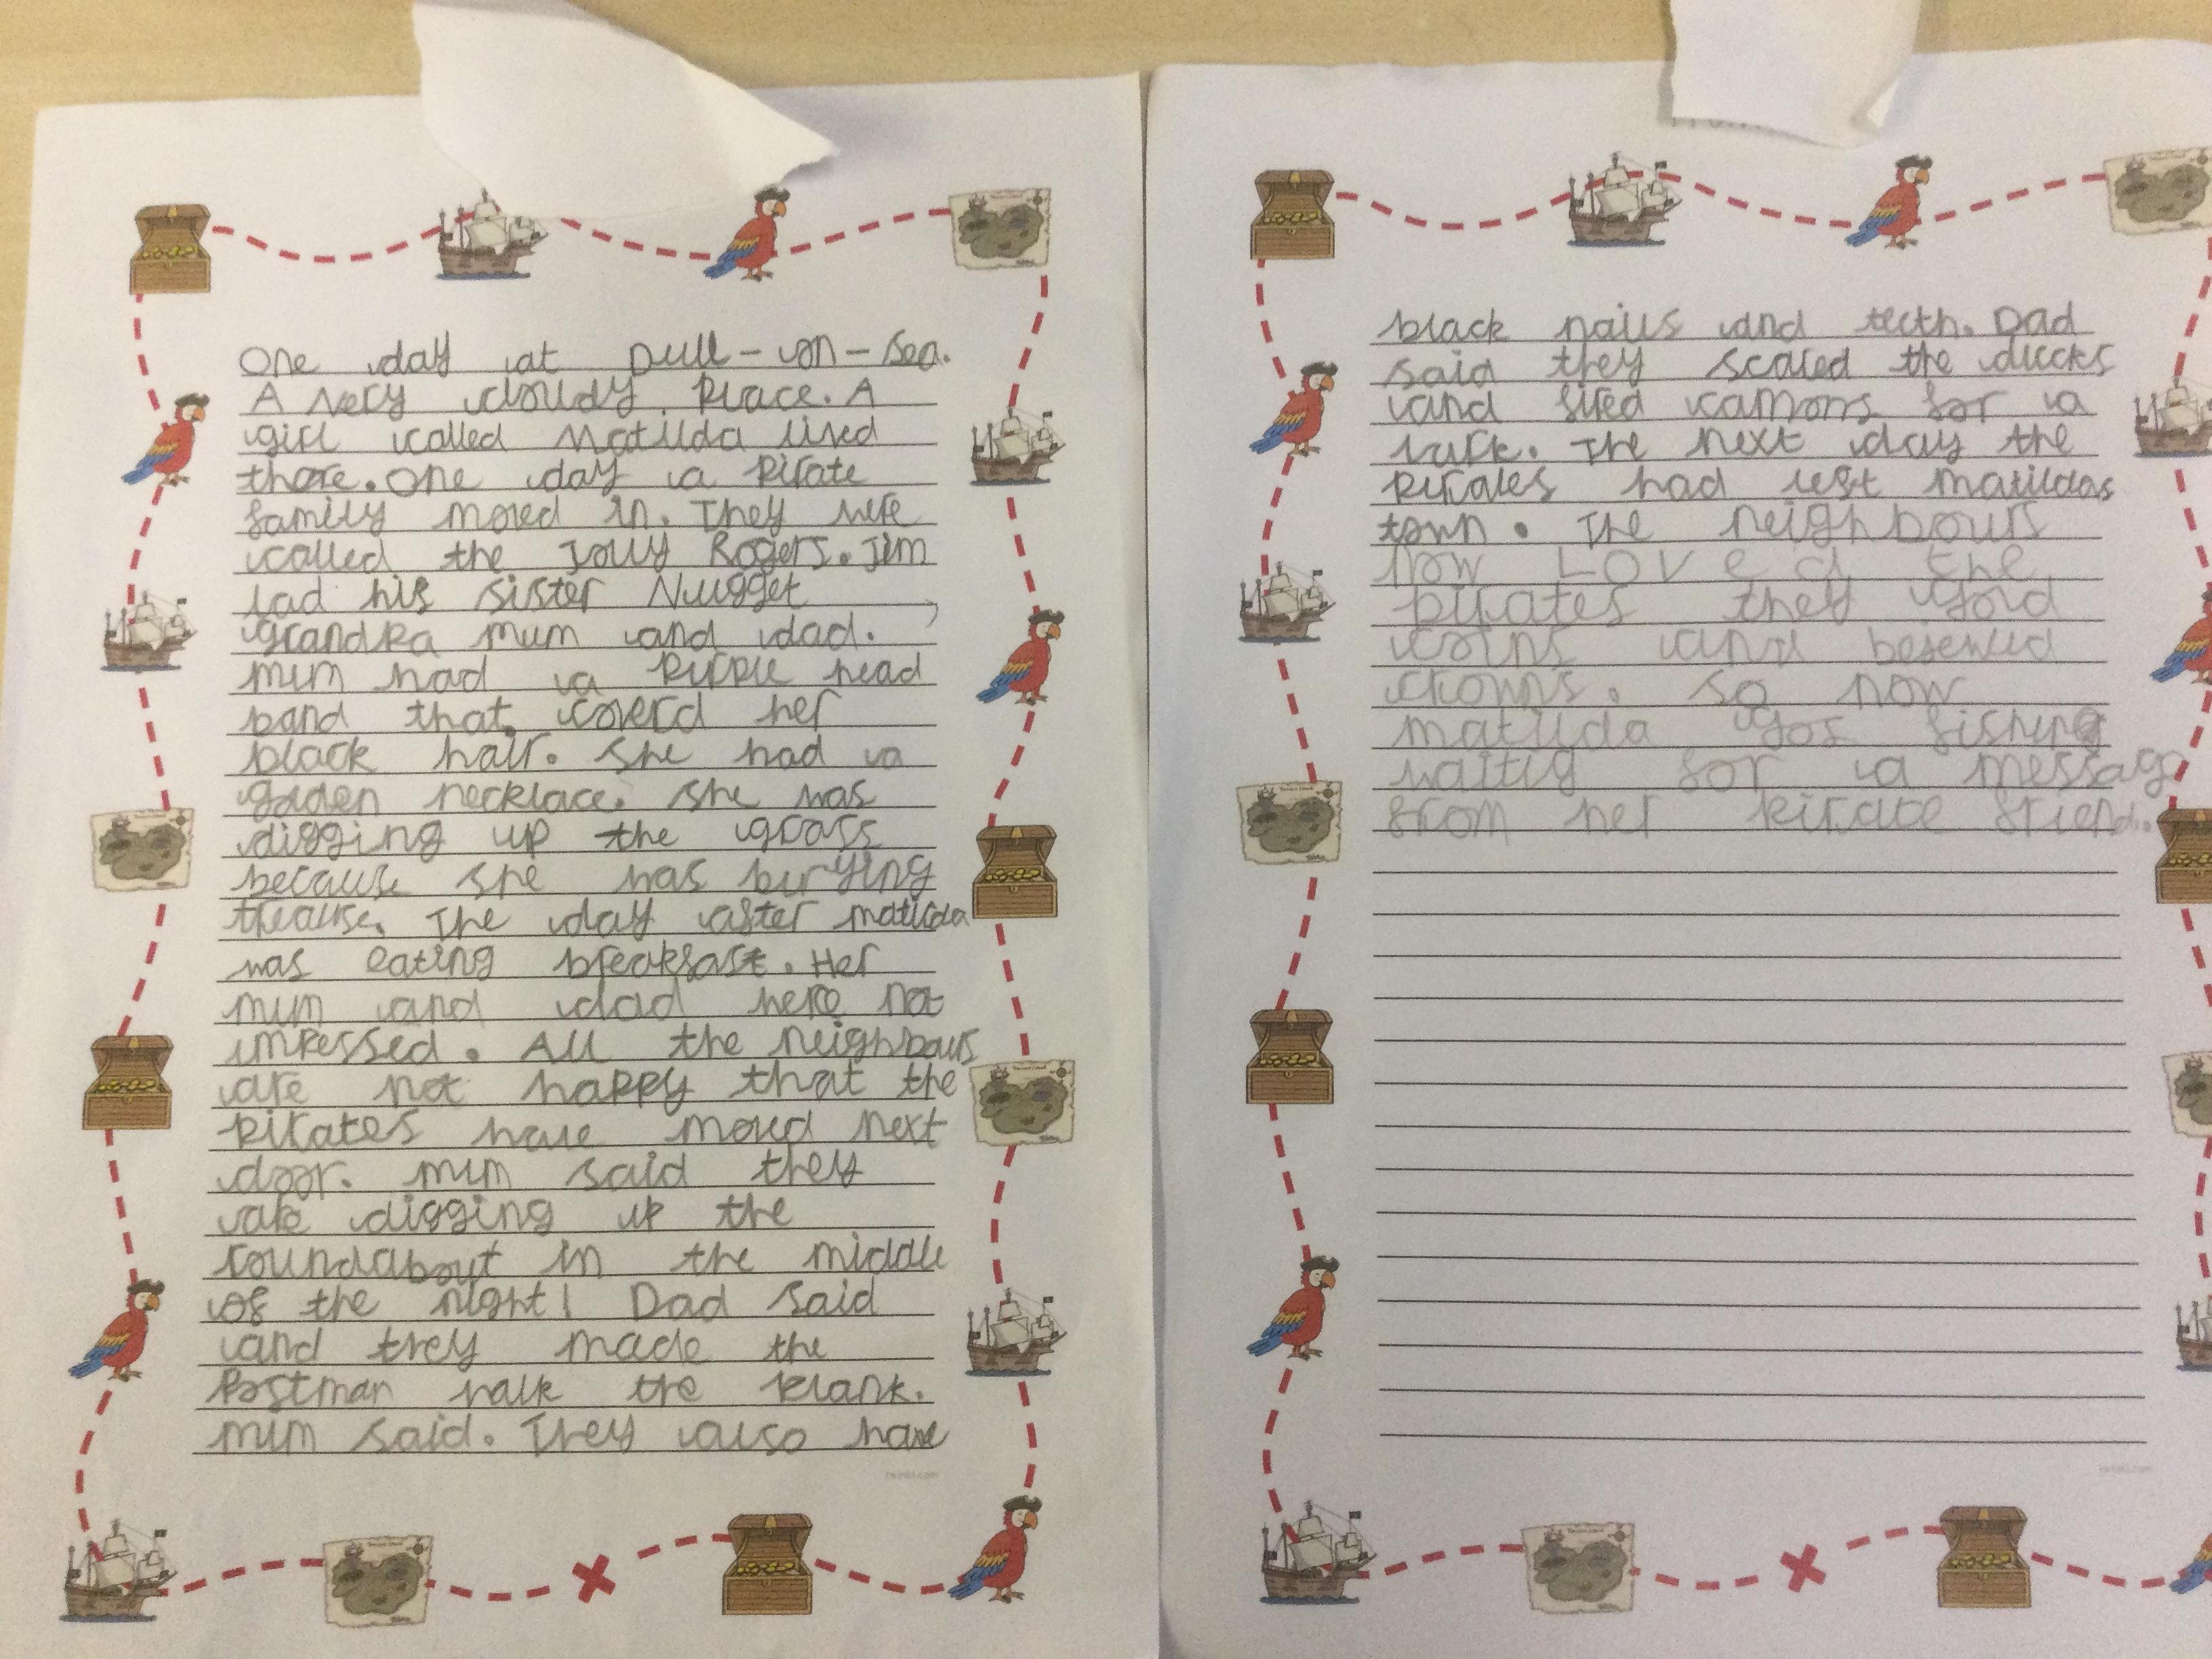 One day at Dull-on-Sea.
A very cloudy place. A
girl called Matilda lived
there. One day a pirate
family moved in. They were
called the Jolly Rogers. Jim
lad his sister Nugget
grandpa mum and dad.
mum had a purple head
band that coverd her
black hair. She had a
golden necklace. She was
digging up the grass
because she was burying
treause. The day after matilda
was eating breakfast. Her
mum and dad were not
impessed. All the neighbours
are not happy that the
pirates have moved next
door. mum said they
are digging up the
roundabout in the middle
of the night! Dad said
and they made the
Postman walk the plank.
mum said. They also have
black nails and teeth. Dad
said they scared the ducks
and fired canons for a
lark. The next day the
pirates had left matildas
town. The neighbours
now LOVed the
pirates they gold
coins and
crowns. so now
matilda gos fishing
waitig for a message
from her pirate friend.
twinkl.com
twinkl.com